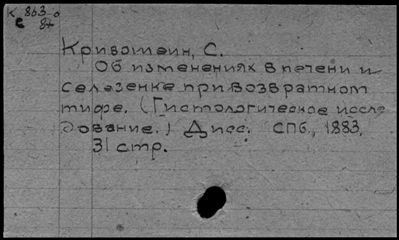 К 863-0
с 84
Кривошеин, С.
Об изменениях в печени и
селезенке при возвратном
тифе. (Гистологическое иссле
дование.) Дисс. СПб., 1883,
31 стр.